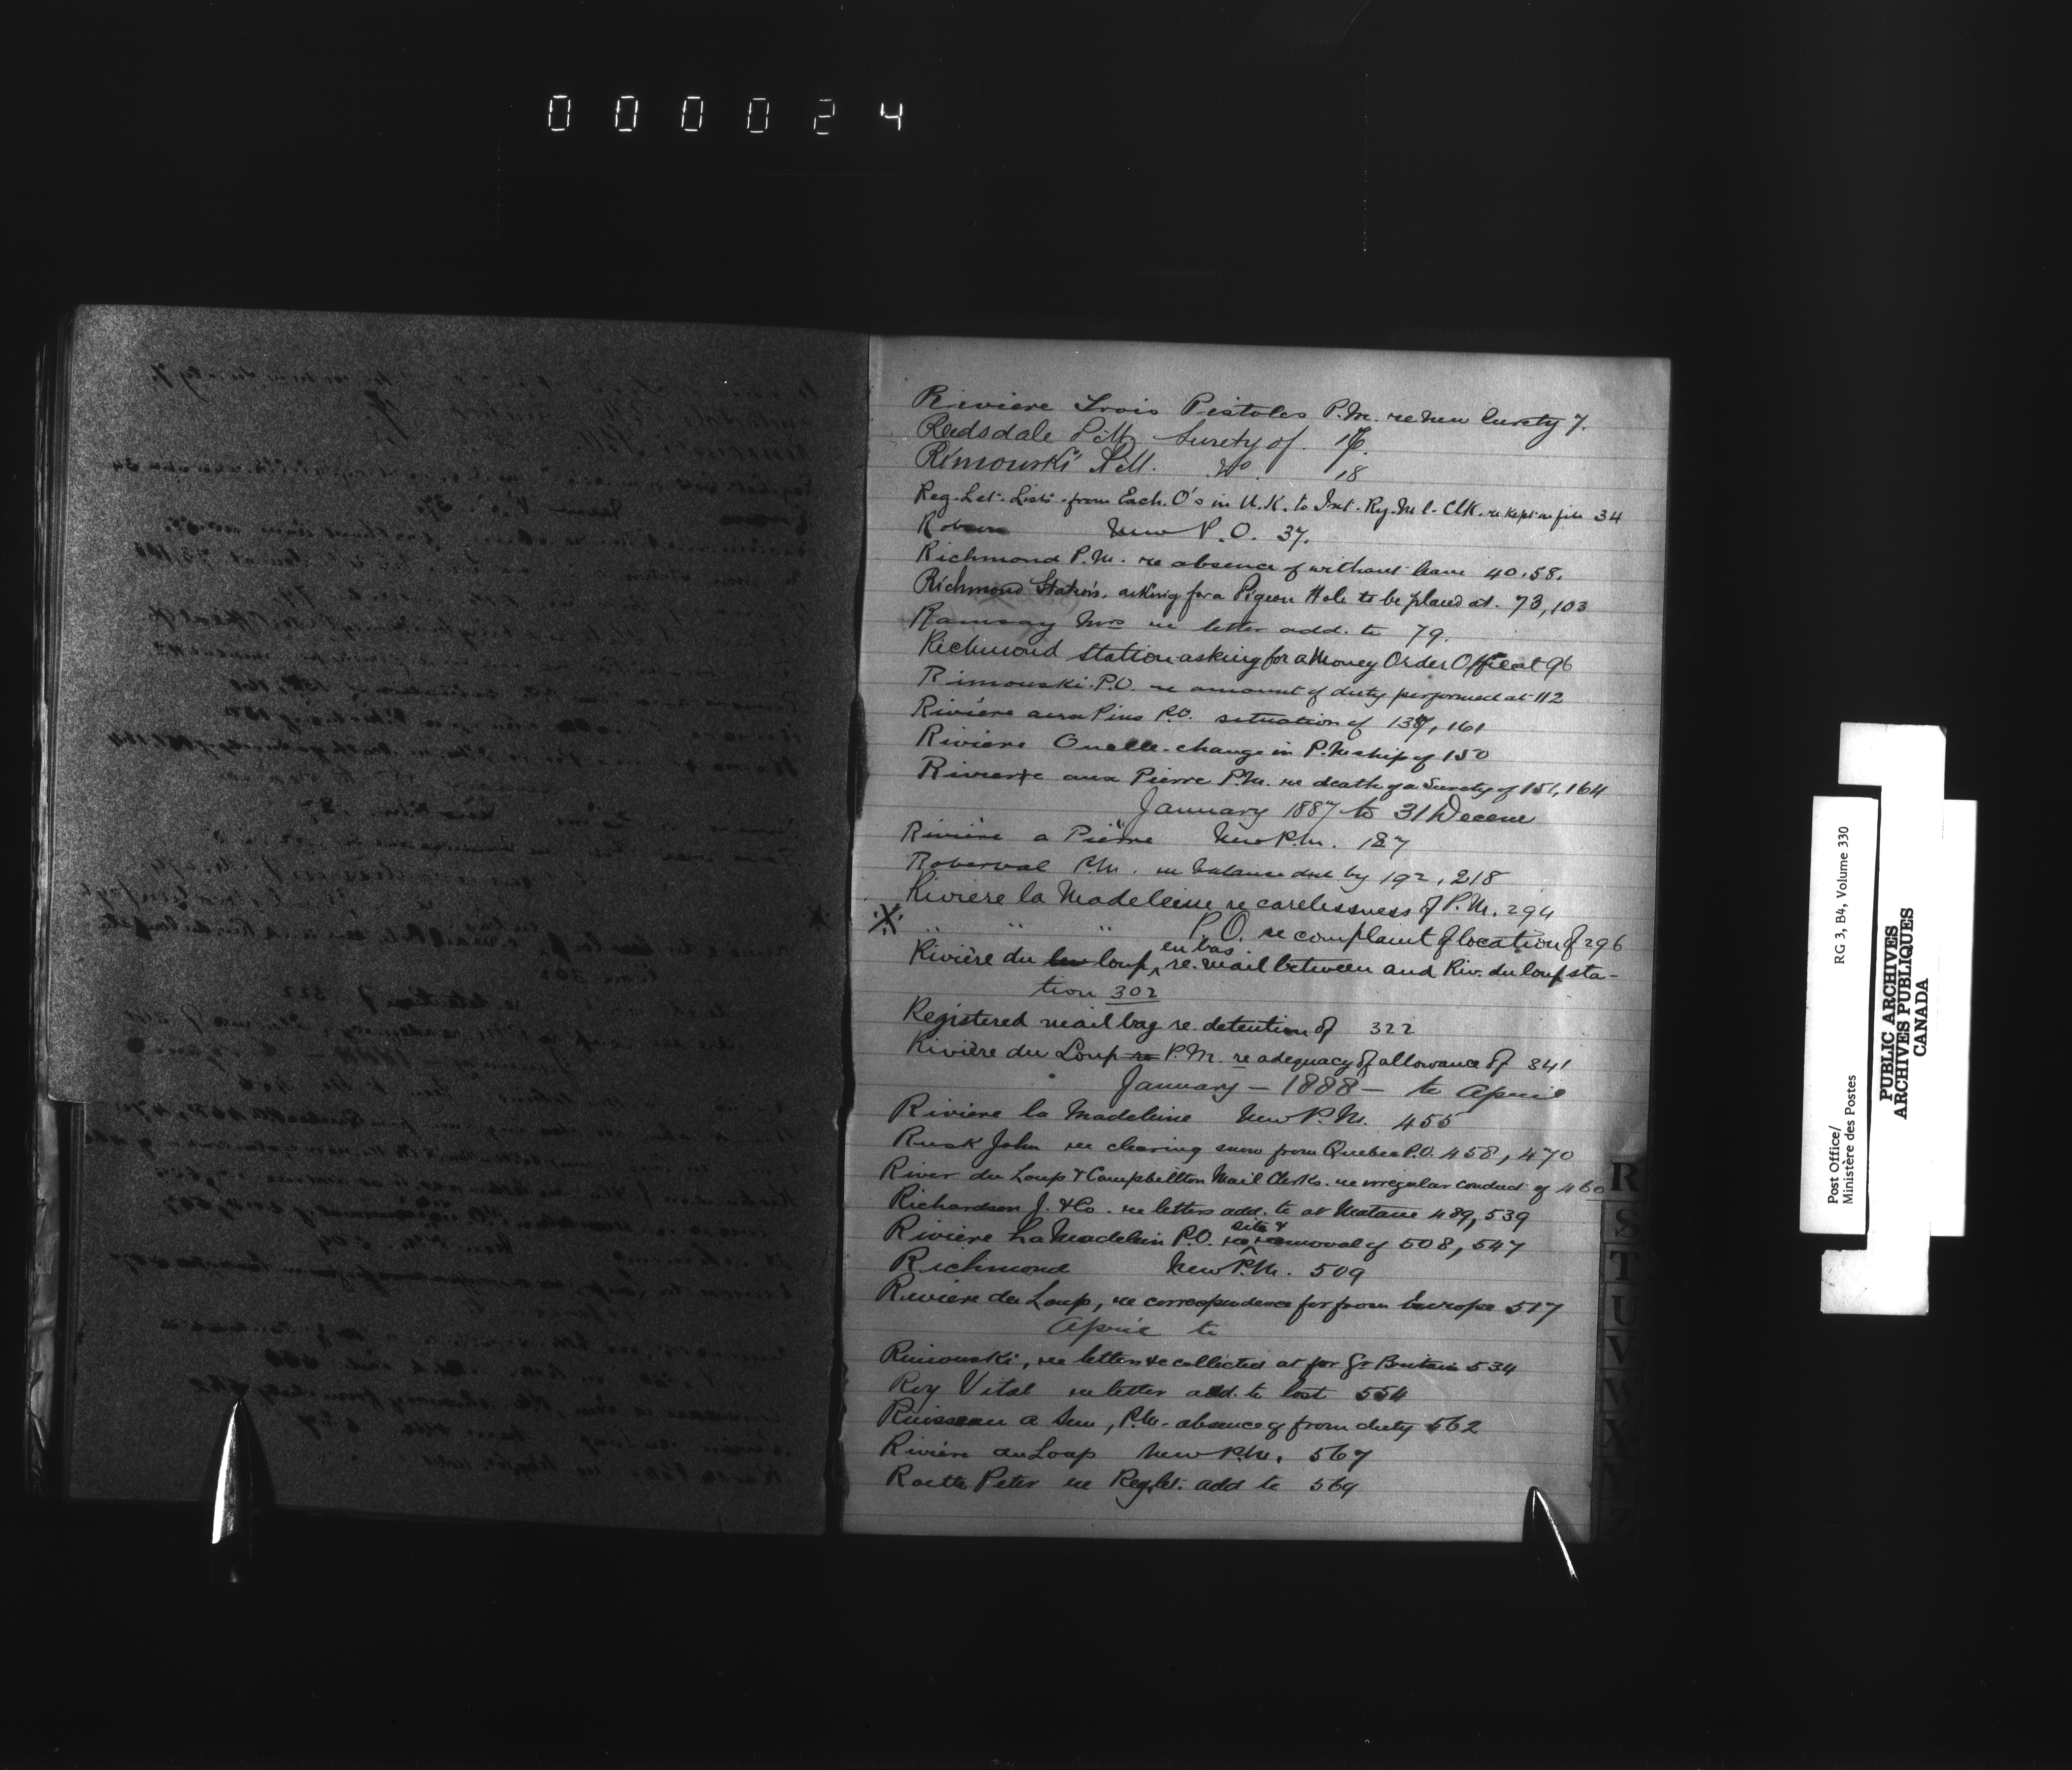 000024
Riviere Trois Pistoles P.M. re new Surety 7.
Reedsdale P.M. Surety of. 16.
Rimouski P.M. Do 18
Reg. Let. Lists from Exch. O's in U.K. to Int. Ry. M l. Clk. re kept on file 34
New P.O. 37.
Richmond P.M. re absence of without leave 40.58.
Richmond Station, asking for a Pigeon Hole to be placed at. 73, 103
Ramsay Mrs re letter add. to 79.
Richmond Station asking for a Money Order Office at 96
Rimouski P.O. re amount of duty performed at 112
Rivière aux Pins P.O. situation of 137, 161
Rivière Ouelle change in P.Mship of 150
Riviere aux Pierre P.M. re death of a Surety of 151, 164
January 1887 to 31 Decem
Rivière a Pierre New P.M. 187
Roberval P.M. re balance due by 192, 218
Rivière la Madeleine re carelessness of P.M. 294
X " " " P.O. re complaint of location of 296
Rivière du loup, en bas re. mail between and Riv. du loup sta-
tion 302
Registered mail bag re. detention of 322
Rivière du Loup re P.M. re adequacy of allowance of 341
January — 1888 — to April
Riviere la Madeleine New P.M. 455
Rusk John re clearing snow from Quebec P.O. 458, 470
River du Loup & Campbellton Mail Clerks. re irregular conduct of 460
Richardson J. & Co. re letters add. to at Matane 489, 539
Riviere La Madelein P.O. re site & removal of 508, 547
Richmond New P.M. 509
Riviere du Loup, re correspondence for from Europe 517
April to
Rimouski, re letters &c collected at for Gt Britain 534
Roy Vital re letter add. to lost 554
Ruisseau a Sem, P.M. absence of from duty 562
Rivière du Loup New P.M. 567
Peter re Reg. let. add to 569
R
S
T
U
V
W
X
Y
Z
Post Office/
Ministère des Postes
RG 3, B4, Volume 330
PUBLIC ARCHIVES
ARCHIVES PUBLIQUES
CANADA